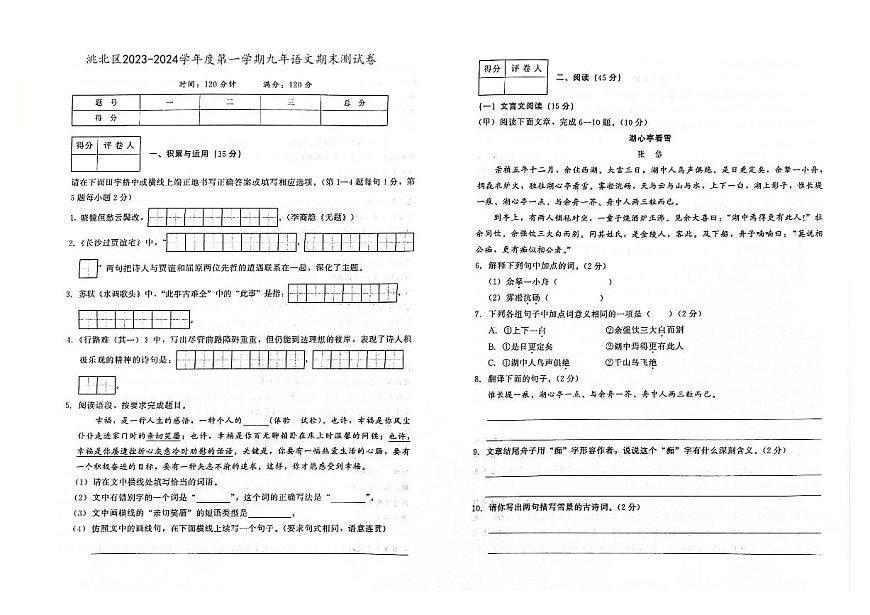 洮北区2023-2024学年度第一学期九年语文期末测试卷
时间：120分钟 满分：120分
题 号 一 二 三 总 分
得 分
得分 评 卷 人
一、积累与运用（15分）
请在下面田字格中或横线上端正地书写正确答案或填写相应选项。（第1—4题每句1分，第
5题每小题2分）
1. 晓镜但愁云鬓改，。（李商隐《无题》）
2. 《长沙过贾谊宅》中，“，
”两句把诗人与贾谊和屈原两位先哲的遭遇联系在一起，深化了主题。
3. 苏轼《水调歌头》中，“此事古难全”中的“此事”是指：，
。
4. 《行路难（其一）》中，写出尽管前路障碍重重，但仍能到达理想的彼岸，表现了诗人积
极乐观的精神的诗句是：，
。
5. 阅读语段，按要求完成题目。
幸福，是一种人生的感悟，一种个人的____（体验 试验）。也许，幸福是你风尘
仆仆走进家门时的亲切笑靥；也许，幸福是你百无聊赖卧在床上时温馨的问侯；也许，
幸福是你屡遭挫折心灰意冷时劝慰的话语。关键是，你要有一幅热爱生活的心肠，要有
一个积极奋进的目标，要有一种矢志不渝的追求。这样，你才能感受到幸福。
（1）请在文中横线处填写恰当的词语。
（2）文中有错别字的一个词是“______”，这个词的正确写法是“______”。
（3）文中画横线的“亲切笑靥”的短语类型是________。
（4）仿照文中的画线句，在下面横线上续写一个句子。（要求句式相同，语意连贯）
得分 评 卷 人
二、阅读（45分）
（一）文言文阅读（15分）
（甲）阅读下面文章，完成6—10题。（10分）
湖心亭看雪
张 岱
崇祯五年十二月，余住西湖。大雪三日，湖中人鸟声俱绝。是日更定矣，余拏一小舟，
拥毳衣炉火，独往湖心亭看雪。雾凇沆砀，天与云与山与水，上下一白。湖上影子，惟长堤
一痕、湖心亭一点、与余舟一芥、舟中人两三粒而已。
到亭上，有两人铺毡对坐，一童子烧酒炉正沸。见余大喜曰：“湖中焉得更有此人！”拉
余同饮。余强饮三大白而别。问其姓氏，是金陵人，客此。及下船，舟子喃喃曰：“莫说相
公痴，更有痴似相公者。”
6. 解释下列句中加点的词。（2分）
（1）余拏一小舟（ ）
（2）雾凇沆砀（ ）
7. 下列各组句子中加点词意义相同的一项是（ ）（2分）
A. ①上下一白 ②余强饮三大白而别
B. ①是日更定矣 ②湖中焉得更有此人
C. ①湖中人鸟声俱绝 ②千山鸟飞绝
8. 翻译下面的句子。（2分）
惟长堤一痕、湖心亭一点、与余舟一芥、舟中人两三粒而已。
9. 文章结尾舟子用“痴”字形容作者，说说这个“痴”字有什么深刻含义。（2分）
10. 请你写出两句描写雪景的古诗词。（2分）